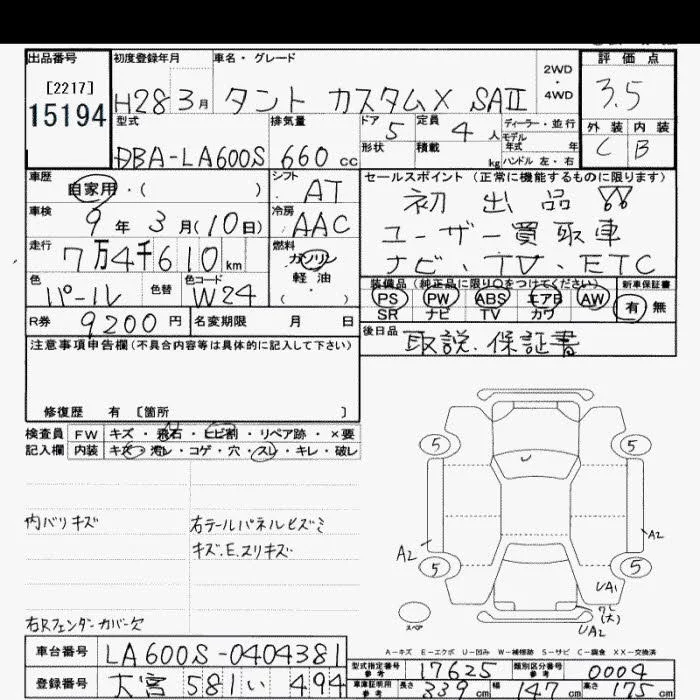 出品番号 初度登録年月 車名・グレード 評価点
[2217]
15194
H28 3月 タント カスタムX SAⅡ 2WD・4WD 3.5
型式 排気量 ドア 5 定員 4人 ディーラー・並行 外装 内装
モデル年式 年
DBA-LA600S 660cc 形状 積載 kg ハンドル 左・右 C B
車歴 シフト セールスポイント(正常に機能するものに限ります)
自家用・( ) AT 初出品
車検 冷房
9年3月(10日) AAC ユーザー買取車
走行 燃料
7万4千610km ガソリン ナビ、TV、ETC
軽油
( )
色 色替 色コード 装備品(純正品に限り○をつけてください) 新車保証書
パール W24 PS PW ABS エアB AW 有 無
SR ナビ TV カワ
R券 9200円 名変期限 月 日 後日品 取説.保証書
注意事項申告欄(不具合内容等は具体的に記入して下さい)
修復歴 有 [箇所 ]
検査員 FW キズ・飛石・ヒビ割・リペア跡・×要
記入欄 内装 キズ・汚レ・コゲ・穴・スレ・キレ・破レ
5 5
内バリキズ 右テールパネルヒズミ
キズ.E.スリキズ
A2 A2
5 5
UA1
(大)
UA2
スペア
右Rフェンダーカバー欠
A-キズ E-エクボ U-凹み W-補修跡 S-サビ C-腐食 XX-交換済
車台番号 LA600S-0404381
型式指定番号 参考 17625 類別区分番号 参考 0004
登録番号 大宮 581 い 494
車庫証明用 参考 長さ 339cm 幅 147cm 高さ 175cm